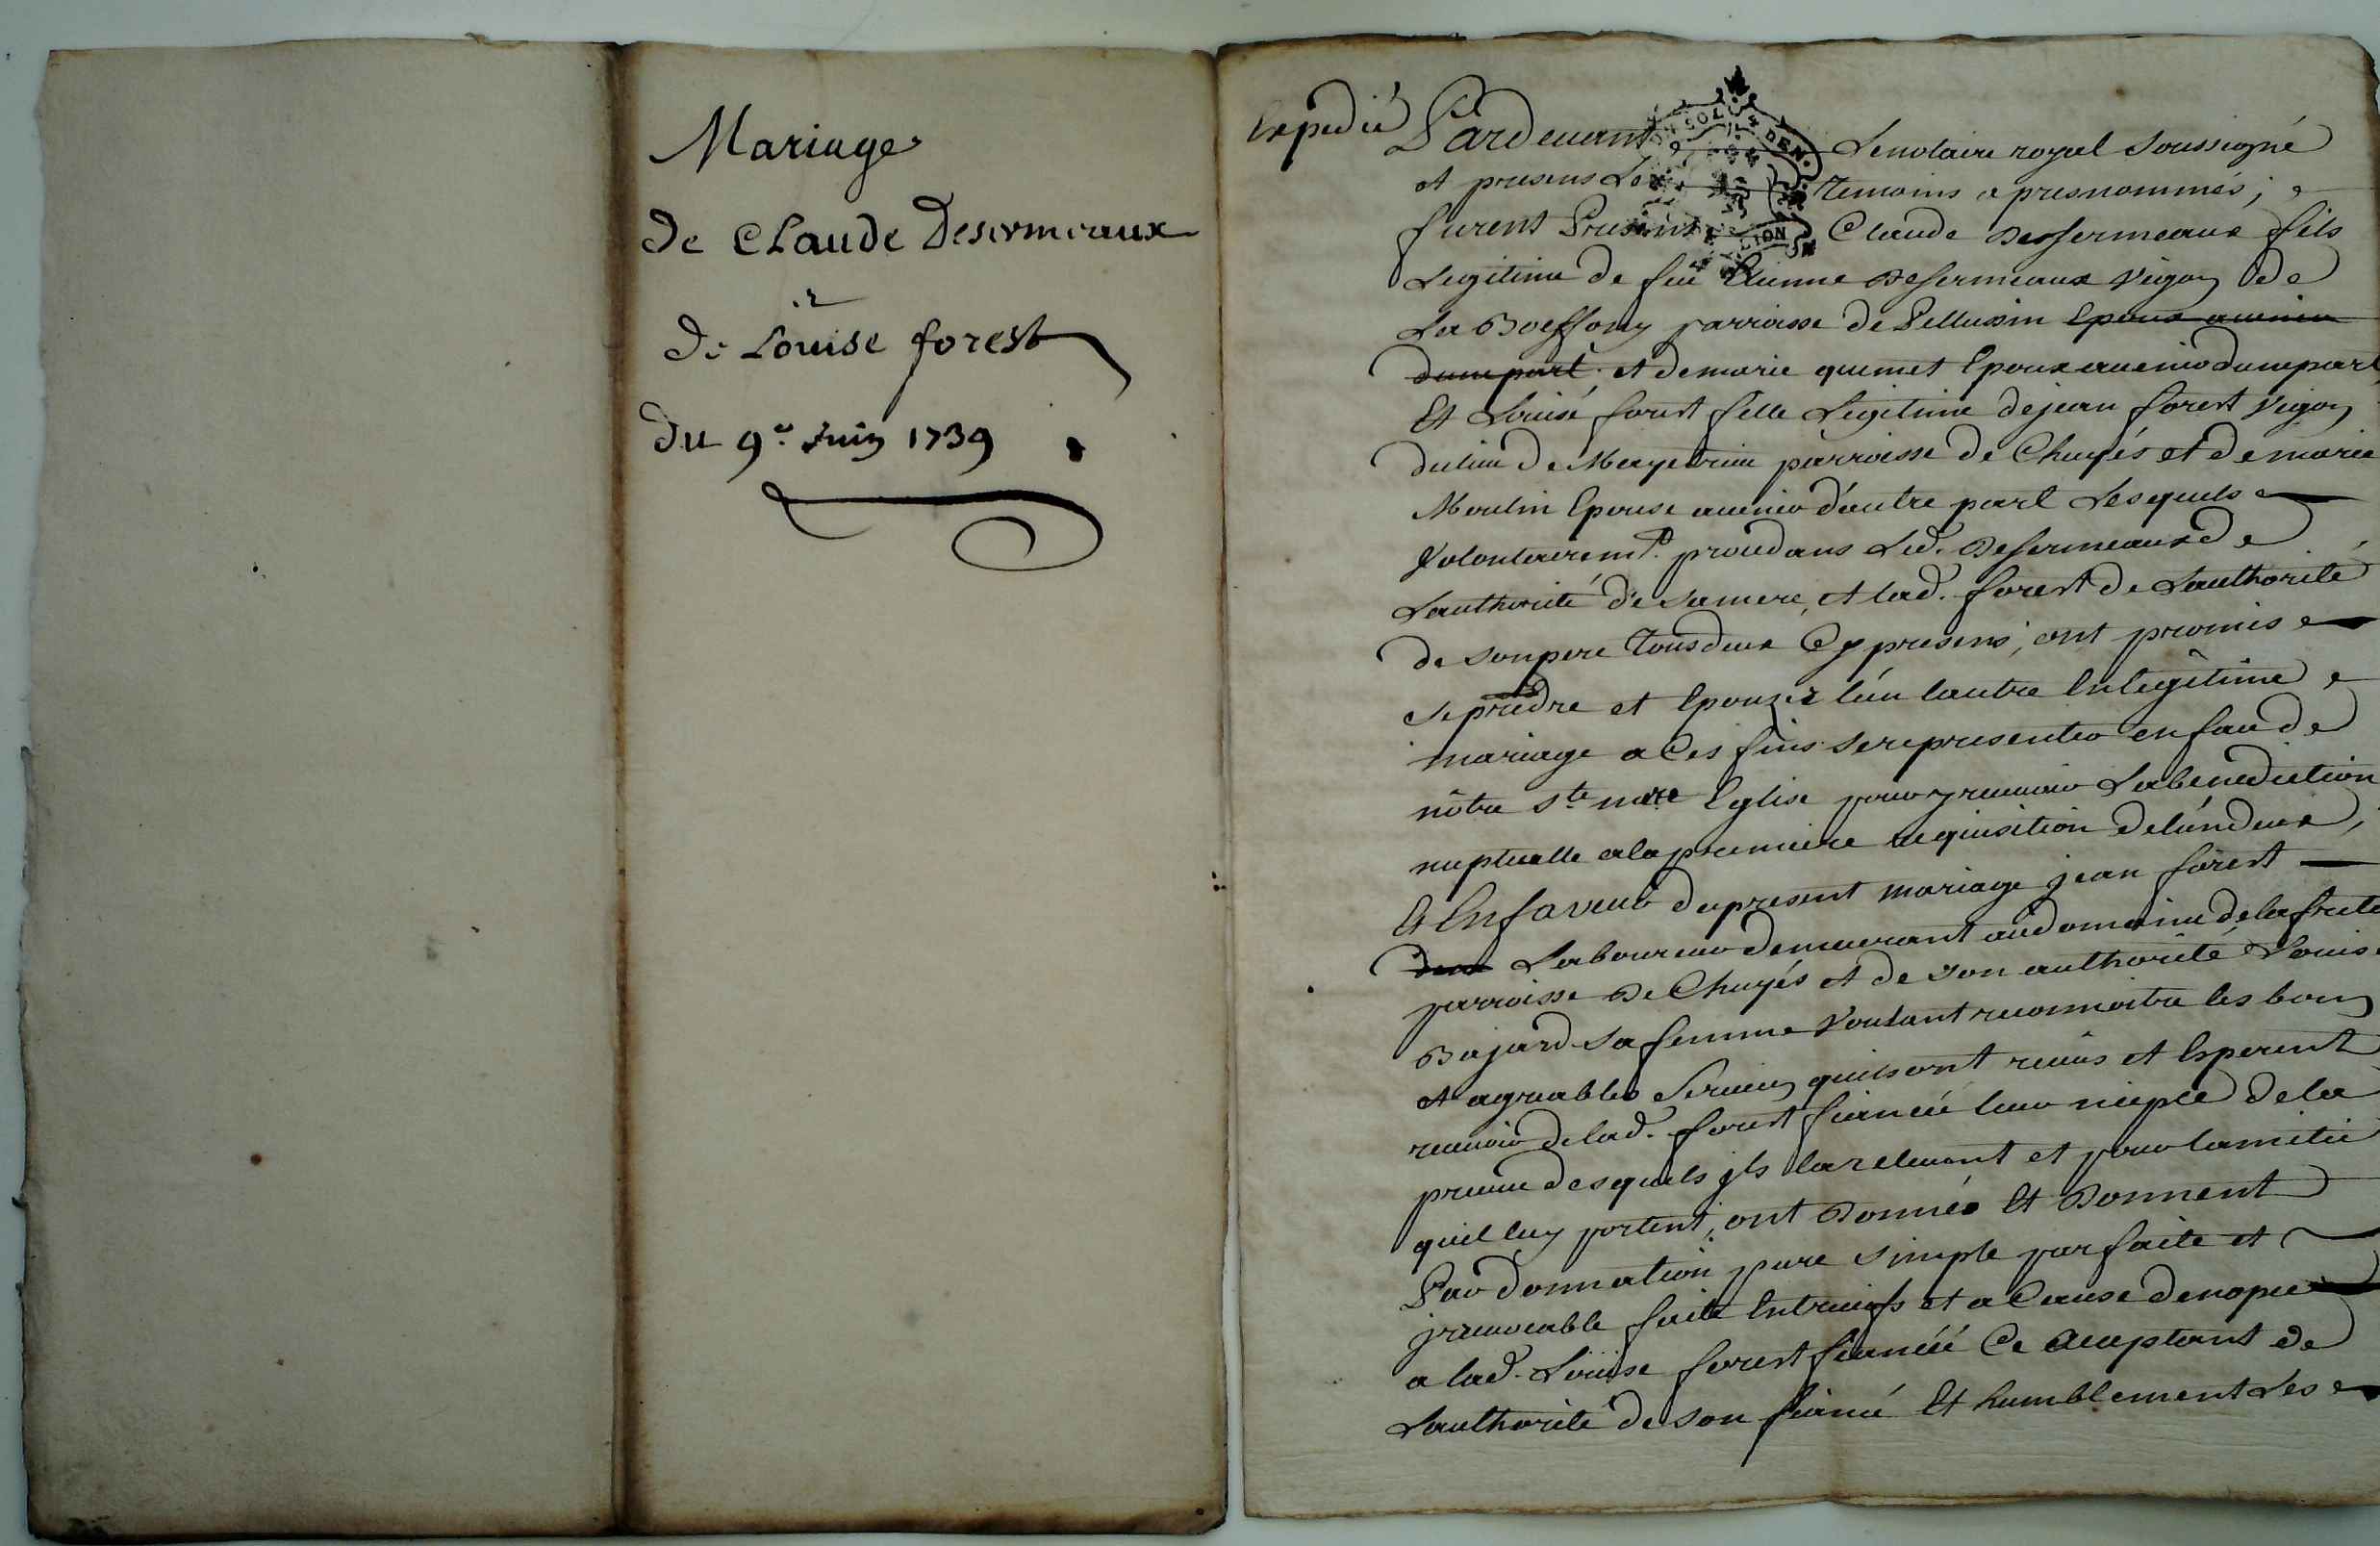 Mariage
de Claude Desermeaux
&
de Louise forest
du 9e. Juin 1739
Expedié
Pardevant Le notaire royal soussigné
et presens Les temoins apresnommés;
furent Presents Claude Desfermeaux fils
Legitime de feu Etienne Desermeaux vigon de
La Boessony parroisse de Pellussin Epoux avenir
dune part; et de marie quimet Epoux avenir dune part
Et Louise forest fille Legitime de jean forest vigon
du lieu de parroisse de Chuyés et de marie
Moulin Epouse avenir d'autre part Lesquels
Volontairemt. procedans Led. Desermeaux de
Lauthorité de sa mere, et lad. forest de Lauthorité
de son pere tous deux Cy presens, ont promis
se predre et Epouzer l'un lautre En legitime
mariage a Ces fins se representer en face de
nôtre ste mere Eglise pour y recevoir La bénédiction
nuptualle a la premiere requisition de lún deux,
Et En faveur du present mariage jean forest
Laboureur demeurant au domaine de la frete
parroisse de Chuyés et de son authorité Louise
Bajard sa femme voulant reconnoitre les bons
et agreables services quils ont reçus et Esperent
recevoir de lad. forest fiancée leur niepce de la
preuve desquels jls la relevent et pour lamitié
quil luy portent, ont donnés Et donnent
Par donnation pure simple parfaite et
jrrevocable faite Entreuifs et a Cause de nopce
a lad. Louise forest fiancéé Ce acceptant de
Lauthorité de son fiancé Et humblement Les